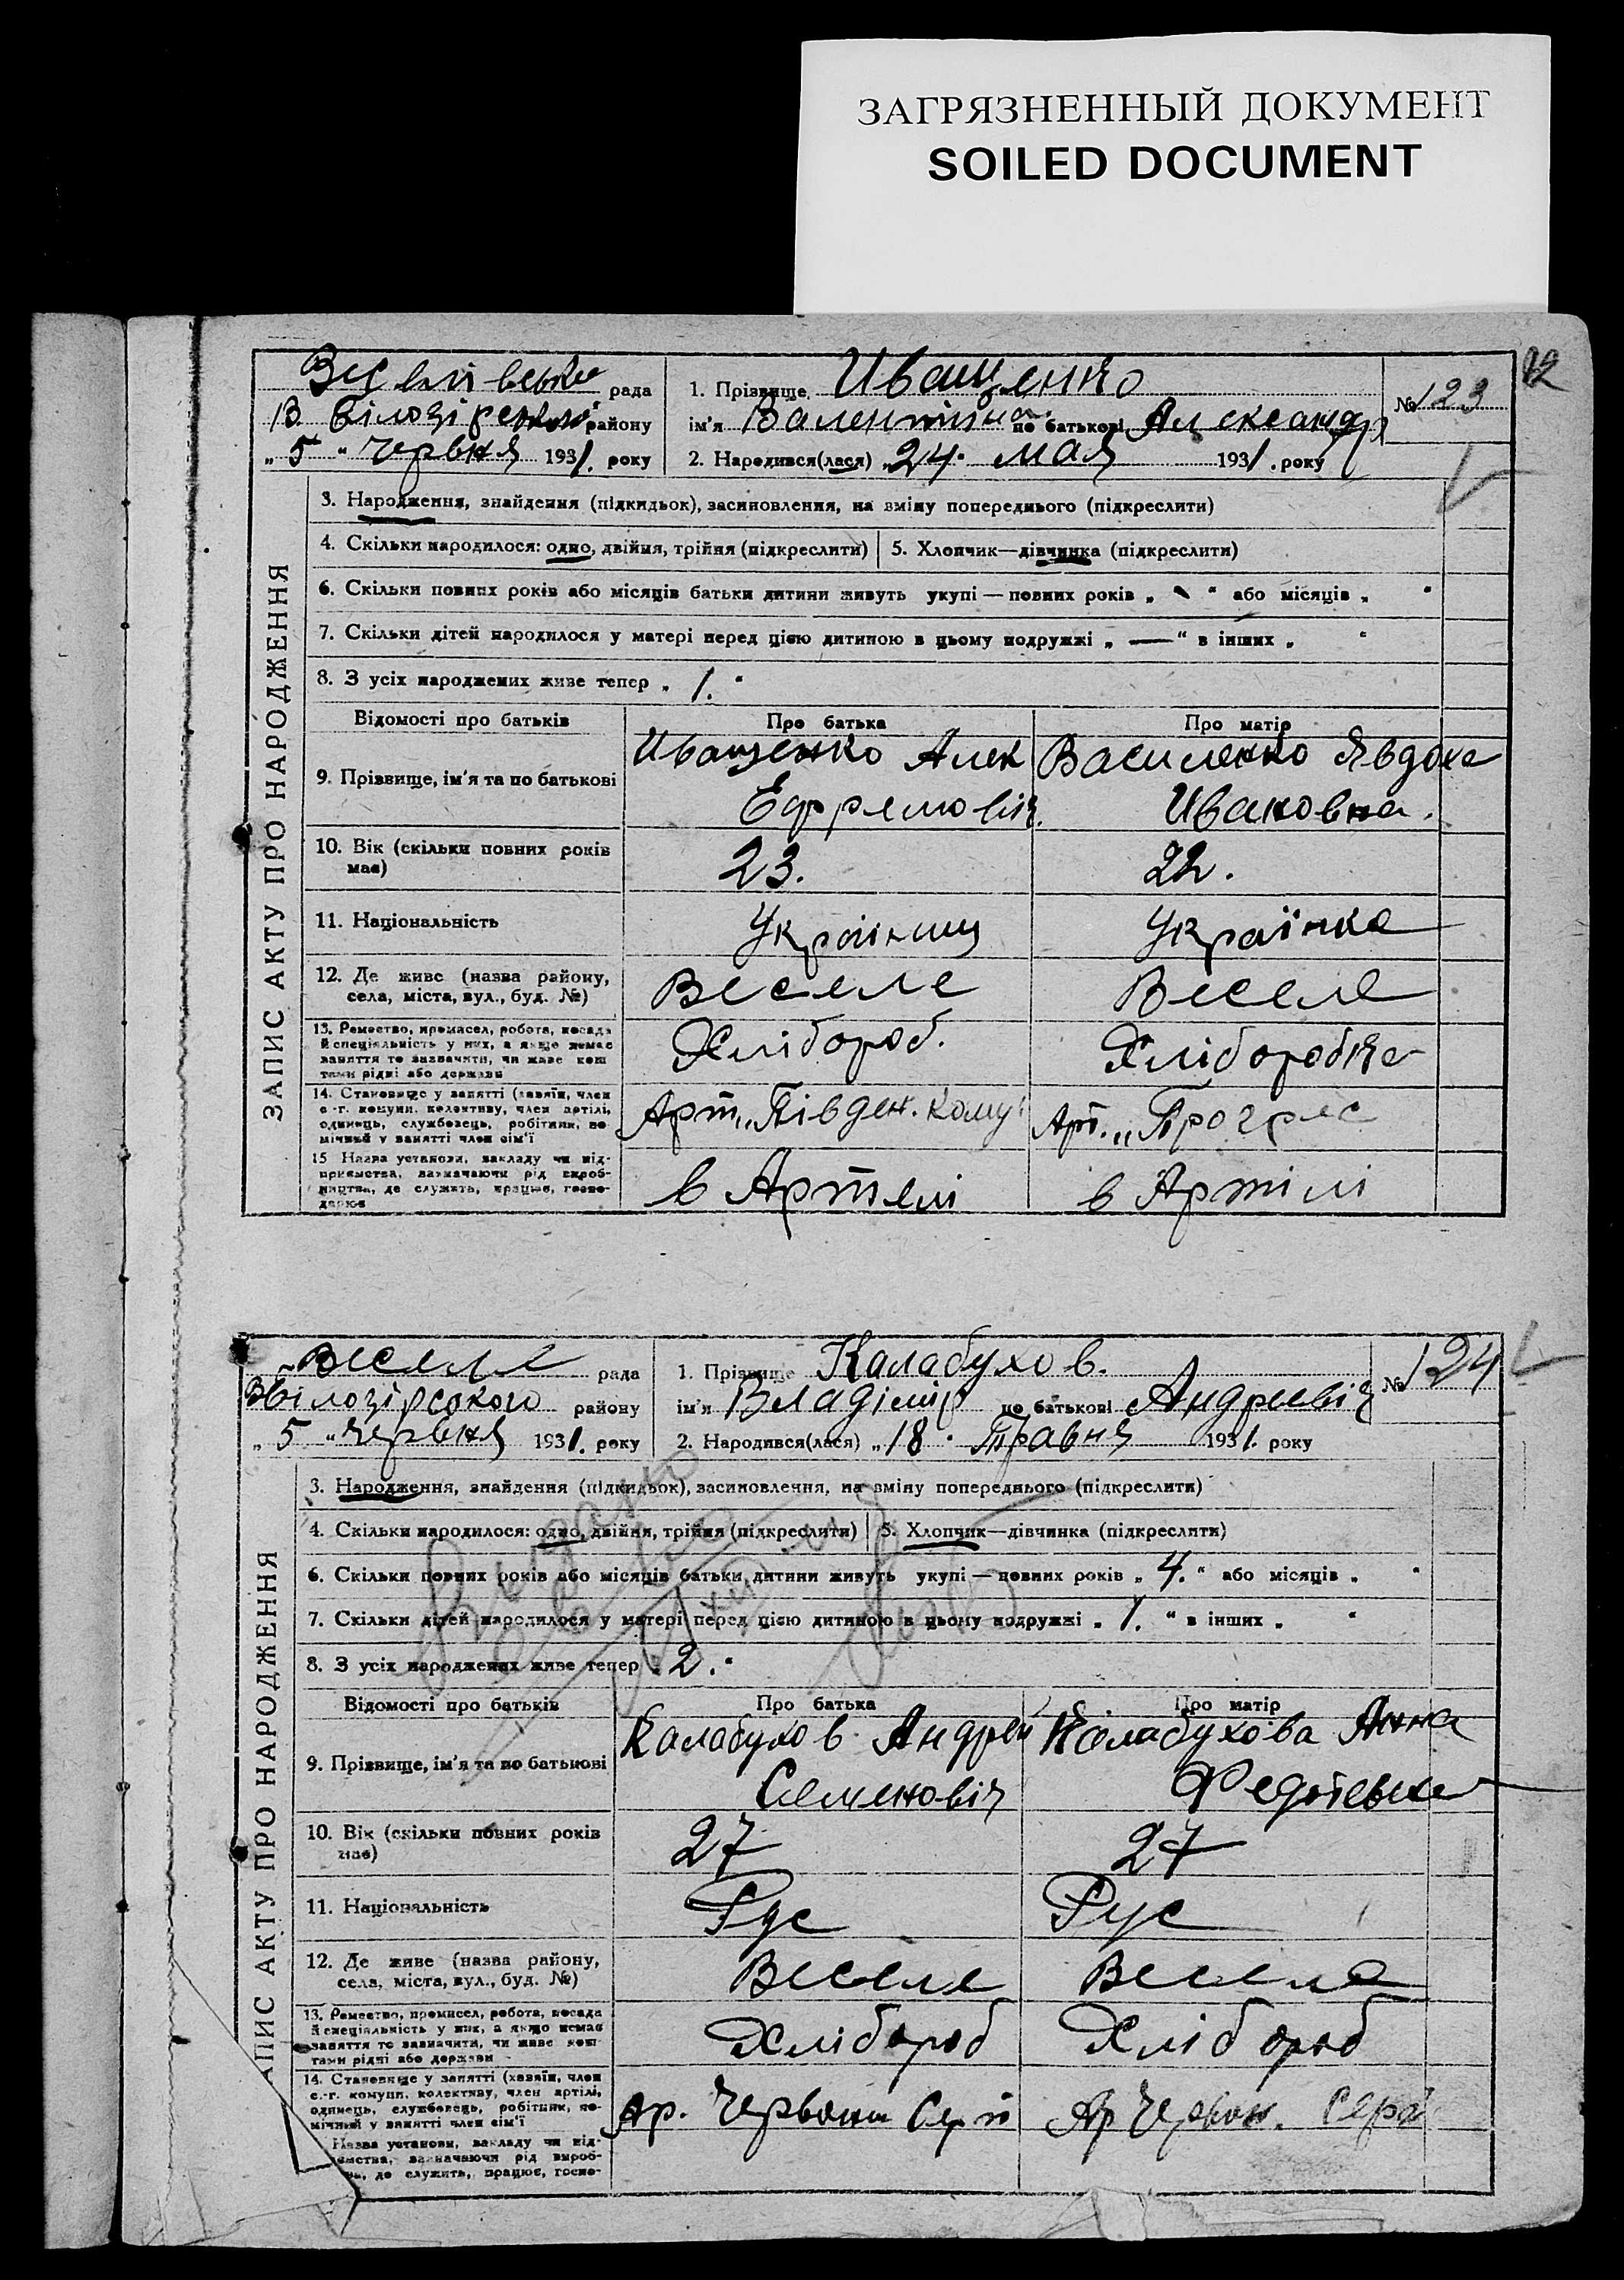 ЗАГРЯЗНЕННЫЙ ДОКУМЕНТ
SOILED DOCUMENT
рада
В. Білозірської району
„5“ червня 1931. року
1. Прізвище Иващенко
ім'я Валентина по батькові Александр
2. Народився(лася) „24“ мая 1931. року
№ 123
ЗАПИС АКТУ ПРО НАРОДЖЕННЯ
3. Народження, знайдення (підкидьок), засиновлення, на зміну попереднього (підкреслити)
4. Скільки народилося: одно, двійня, трійня (підкреслити)
5. Хлопчик—дівчинка (підкреслити)
6. Скільки повних років або місяців батьки дитини живуть укупі — повних років „ “ або місяців „ “
7. Скільки дітей народилося у матері перед цією дитиною в цьому подружжі „ — “ в інших „ “
8. З усіх народжених живе тепер „ 1. “
Відомості про батьків
Про батька
Про матір
9. Прізвище, ім'я та по батькові
Иващенко Алек
Ефремовіч.
Василенко Явдоха
Ивановна.
10. Вік (скільки повних років має)
23.
22.
11. Національність
Українець
Українка
12. Де живе (назва району,
села, міста, вул., буд. №)
Веселе
Веселе
13. Ремество, промисел, робота, посада
й спеціальність у них, а якщо немає
заняття то зазначити, чи живе кош
тами рідні або держави
Хлібороб.
Хліборобка
14. Становище у занятті (хазяїн, член
с.-г. комуни, колективу, член артілі,
одинець, службовець, робітник, по
мічний у занятті член сім'ї
Арт. „Півден. кому
Арт. „Прогрес
15 Назва установи, закладу чи під-
приємства, зазначаючи рід вироб-
ництва, де служить, працює, госпо-
дарює
в Артелі
в Артілі
Веселе рада
В Білозірського району
„5“ червня 1931. року
1. Прізвище Калабухов.
ім'я Владімір по батькові Андреевіч
2. Народився(лася) „18“ Травня 1931. року
№ 124
ЗАПИС АКТУ ПРО НАРОДЖЕННЯ
3. Народження, знайдення (підкидьок), засиновлення, на зміну попереднього (підкреслити)
4. Скільки народилося: одно, двійня, трійня (підкреслити)
5. Хлопчик—дівчинка (підкреслити)
6. Скільки повних років або місяців батьки дитини живуть укупі — повних років „ 4. “ або місяців „ “
7. Скільки дітей народилося у матері перед цією дитиною в цьому подружжі „ 1. “ в інших „ “
8. З усіх народжених живе тепер „ 2. “
Відомості про батьків
Про батька
Про матір
9. Прізвище, ім'я та по батькові
Калабухов Андрей
Семеновіч
Калабухова Анна
10. Вік (скільки повних років
має)
27
27
11. Національність
Рус
Рус
12. Де живе (назва району,
села, міста, вул., буд. №)
Веселе
Веселе
13. Ремество, промисел, робота, посада
й спеціальність у них, а якщо немає
заняття то зазначити, чи живе кош
тами рідні або держави
Хлібороб
Хлібороб
14. Становище у занятті (хазяїн, член
с.-г. комуни, колективу, член артілі,
одинець, службовець, робітник, по-
мічний у занятті член сім'ї
Ар. Червони Серп
Ар Червон. Серп
Назва установи, закладу чи під-
ємства, зазначаючи рід вироб-
де служить, працює, госпо-